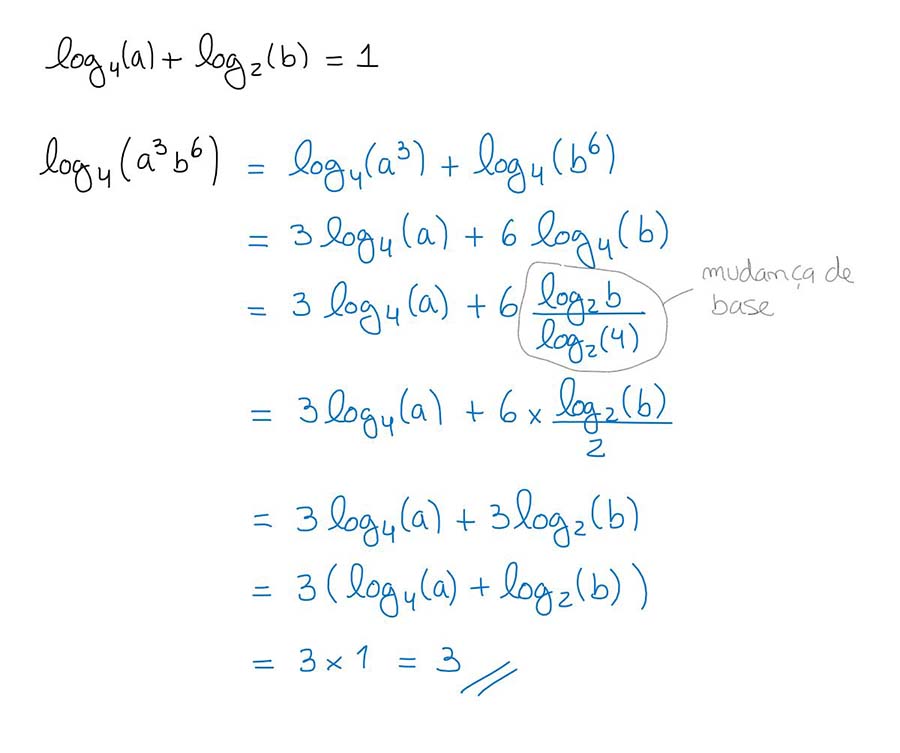 log₄(a) + log₂(b) = 1
log₄(a³b⁶) = log₄(a³) + log₄(b⁶)
= 3 log₄(a) + 6 log₄(b)
= 3 log₄(a) + 6 log₂b / log₂(4)
mudança de
base
= 3 log₄(a) + 6 × log₂(b) / 2
= 3 log₄(a) + 3 log₂(b)
= 3 ( log₄(a) + log₂(b) )
= 3 × 1 = 3 //